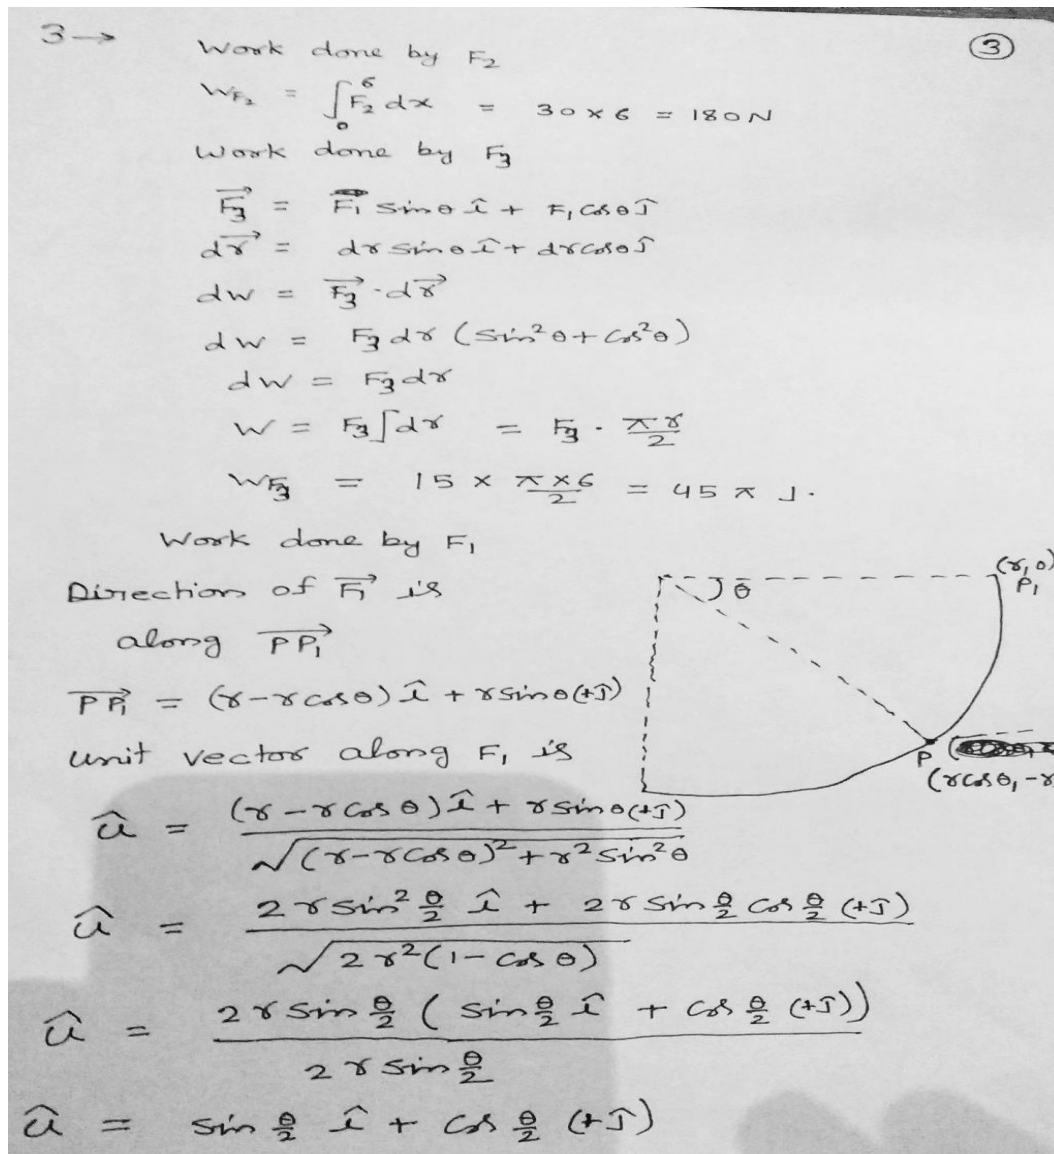 3→ Work done by F₂ ③
W_F₂ = ∫₀⁶ F₂ dx = 30 × 6 = 180N
Work done by F₃
F₃⃗ = F₁ sinθ î + F₁ cosθ ĵ
dr⃗ = dr sinθ î + dr cosθ ĵ
dw = F₃⃗ · dr⃗
dw = F₃ dr (sin²θ + cos²θ)
dw = F₃ dr
W = F₃ ∫dr = F₃ · πr/2
W_F₃ = 15 × π×6/2 = 45 π J.
Work done by F₁
Direction of F₁⃗ is
along PP₁⃗
PP₁⃗ = (r - r cosθ) î + r sinθ (+ĵ)
unit vector along F₁ is
û = (r - r cosθ) î + r sinθ (+ĵ) / √(r - r cosθ)² + r² sin²θ
û = 2r sin² θ/2 î + 2r sin θ/2 cos θ/2 (+ĵ) / √2r²(1 - cosθ)
û = 2r sin θ/2 ( sin θ/2 î + cos θ/2 (+ĵ)) / 2r sin θ/2
û = sin θ/2 î + cos θ/2 (+ĵ)
(r, 0)
P₁
θ
P
(r cosθ, -r